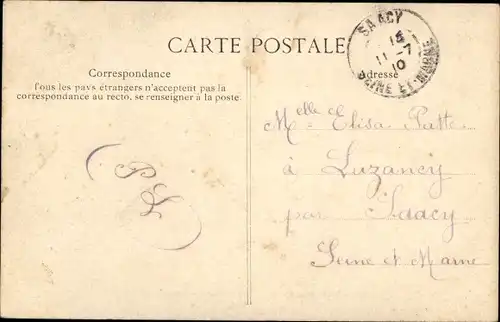 CARTE POSTALE
SAACY
15
11-7
10
SEINE ET MARNE
Correspondance
Tous les pays étrangers n'acceptent pas la
correspondance au recto. se renseigner à la poste.
Adresse
Melle Elisa Patte
à Luzancy
par Saacy
Seine et Marne